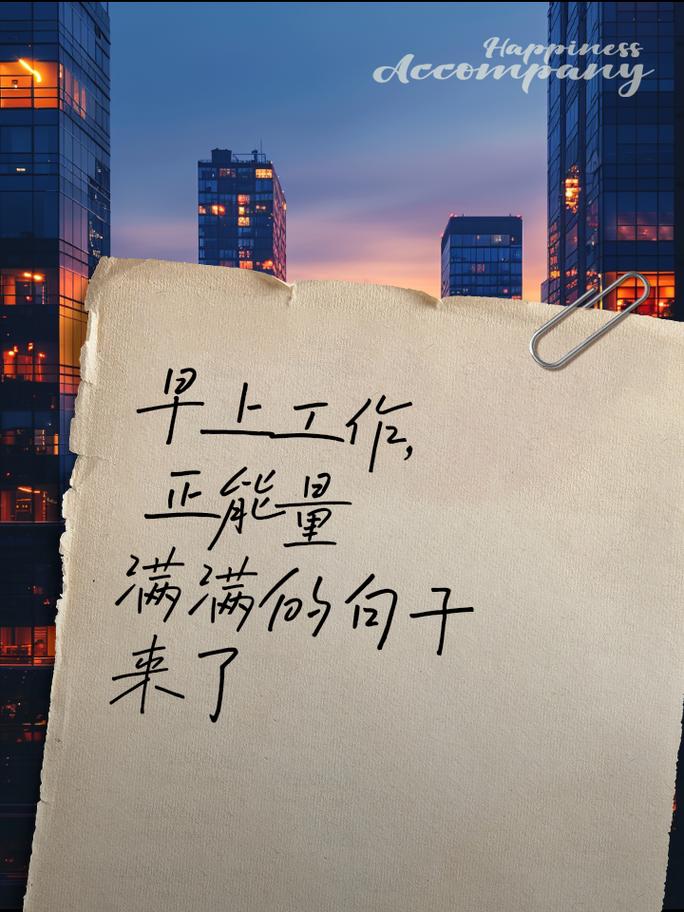 Happiness
Accompany
早上工作,
正能量
满满的句子
来了